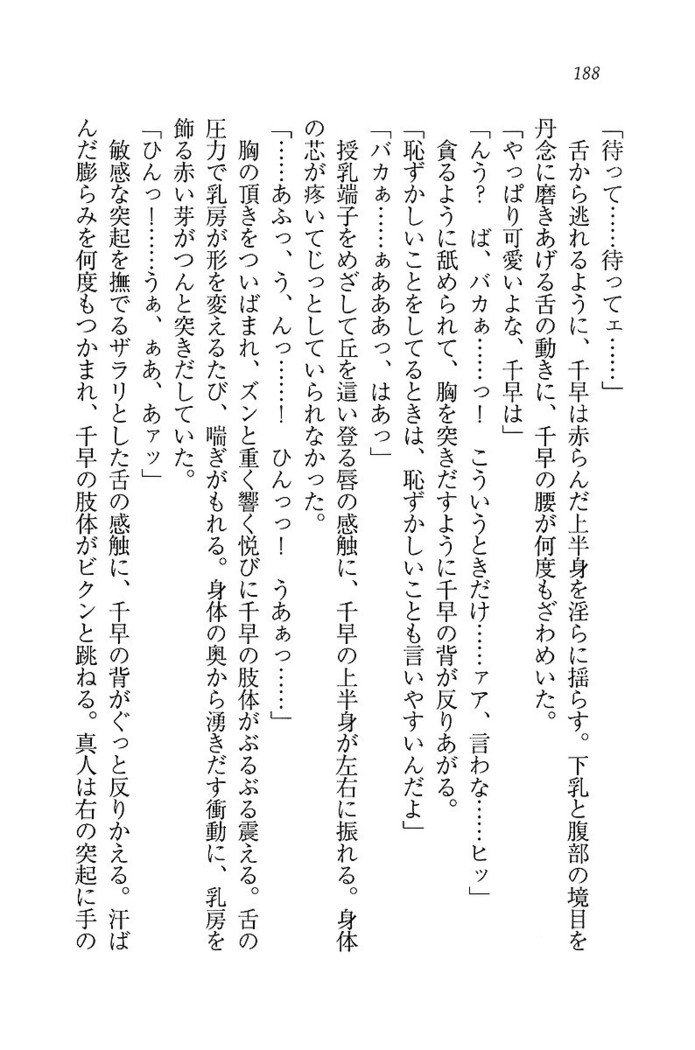 188
「待って……待ってェ……」
　舌から逃れるように、千早は赤らんだ上半身を淫らに揺らす。下乳と腹部の境目を
丹念に磨きあげる舌の動きに、千早の腰が何度もざわめいた。
「やっぱり可愛いよな、千早は」
「んう？　ば、バカぁ……っ！　こういうときだけ……ァア、言わな……ヒッ」
　貪るように舐められて、胸を突きだすように千早の背が反りあがる。
「恥ずかしいことをしてるときは、恥ずかしいことも言いやすいんだよ」
「バカぁ……ぁあああっ、はあっ」
　授乳端子をめざして丘を這い登る唇の感触に、千早の上半身が左右に振れる。身体
の芯が疼いてじっとしていられなかった。
「……あふっ、う、んっ……！　ひんっっ！　うあぁっ……」
　胸の頂きをついばまれ、ズンと重く響く悦びに千早の肢体がぶるぶる震える。舌の
圧力で乳房が形を変えるたび、喘ぎがもれる。身体の奥から湧きだす衝動に、乳房を
飾る赤い芽がつんと突きだしていた。
「ひんっ！……うぁ、ぁあ、あァッ」
　敏感な突起を撫でるザラリとした舌の感触に、千早の背がぐっと反りかえる。汗ば
んだ膨らみを何度もつかまれ、千早の肢体がビクンと跳ねる。真人は右の突起に手の